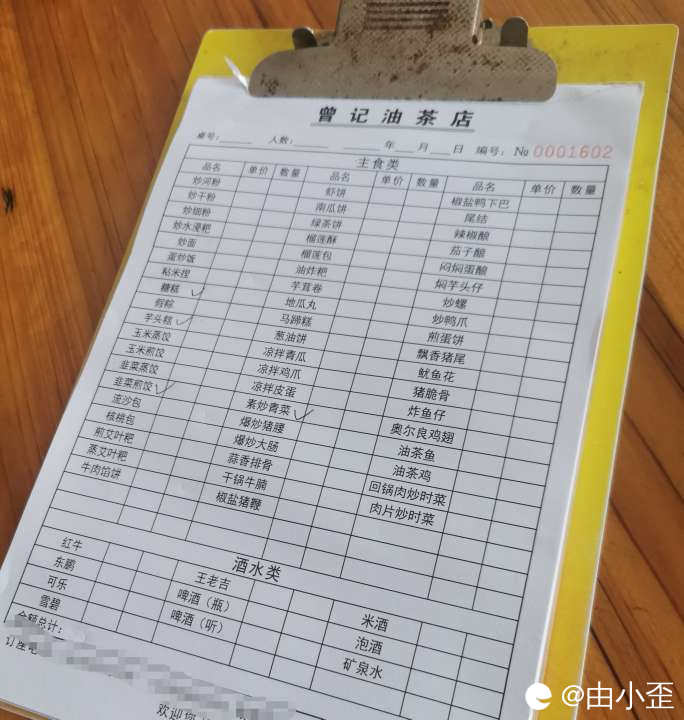 曾记油茶店
桌号: 人数: 年 月 日 编号: № 0001602
主食类
品名 单价 数量 品名 单价 数量 品名 单价 数量
炒河粉 虾饼 椒盐鸭下巴
炒干粉 南瓜饼 尾结
绿茶饼 辣椒酿
炒水浸粑 榴莲酥 茄子酿
炒面 榴莲包 闷焖蛋酿
蛋炒饭 油炸粑 焖芋头仔
粘米捏 芋茸卷 炒螺
糖糕 地瓜丸 炒鸭爪
假粽 马蹄糕 煎蛋饼
芋头糕 葱油饼 飘香猪尾
玉米蒸饺 凉拌青瓜 鱿鱼花
玉米煎饺 凉拌鸡爪 猪脆骨
韭菜蒸饺 凉拌皮蛋 炸鱼仔
韭菜煎饺 素炒青菜 奥尔良鸡翅
流沙包 爆炒猪腰 油茶鱼
核桃包 爆炒大肠 油茶鸡
煎艾叶粑 蒜香排骨 回锅肉炒时菜
蒸艾叶粑 干锅牛腩 肉片炒时菜
牛肉馅饼 椒盐猪鞭
酒水类
红牛 王老吉 米酒
东鹏 啤酒（瓶） 泡酒
可乐 啤酒（听） 矿泉水
雪碧
金额总计:
订座电
欢迎您
@由小歪